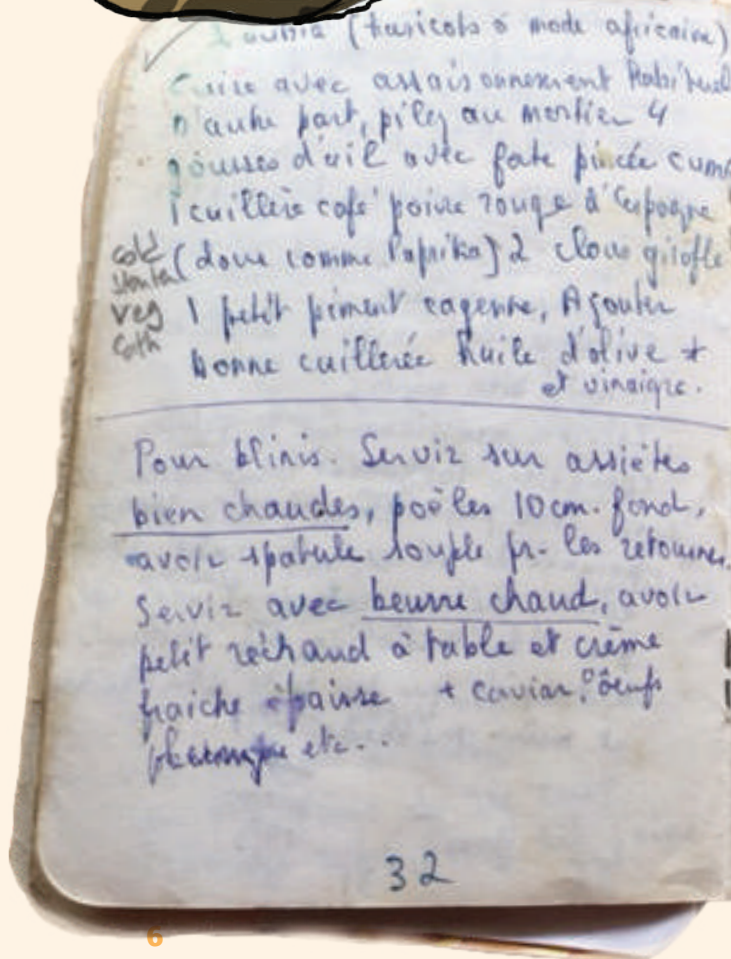 Loubia (haricots à mode africaine)
Cuire avec assaisonnement habituel
D'autre part, pilez au mortier 4
gousses d'ail avec forte pincée cum
1 cuillère café poivre rouge d'Espagne
(doux comme Paprika) 2 clous girofle
1 petit piment cayenne, Ajouter
bonne cuillerée huile d'olive *
et vinaigre.
cold
veg
Pour blinis. Servir sur assiètes
bien chaudes, poëles 10 cm. fond,
avoir spatule souple pr. les retourner.
Servir avec beurre chaud, avoir
petit réchaud à table et crème
fraiche épaisse + caviar, oeufs
etc...
32
6